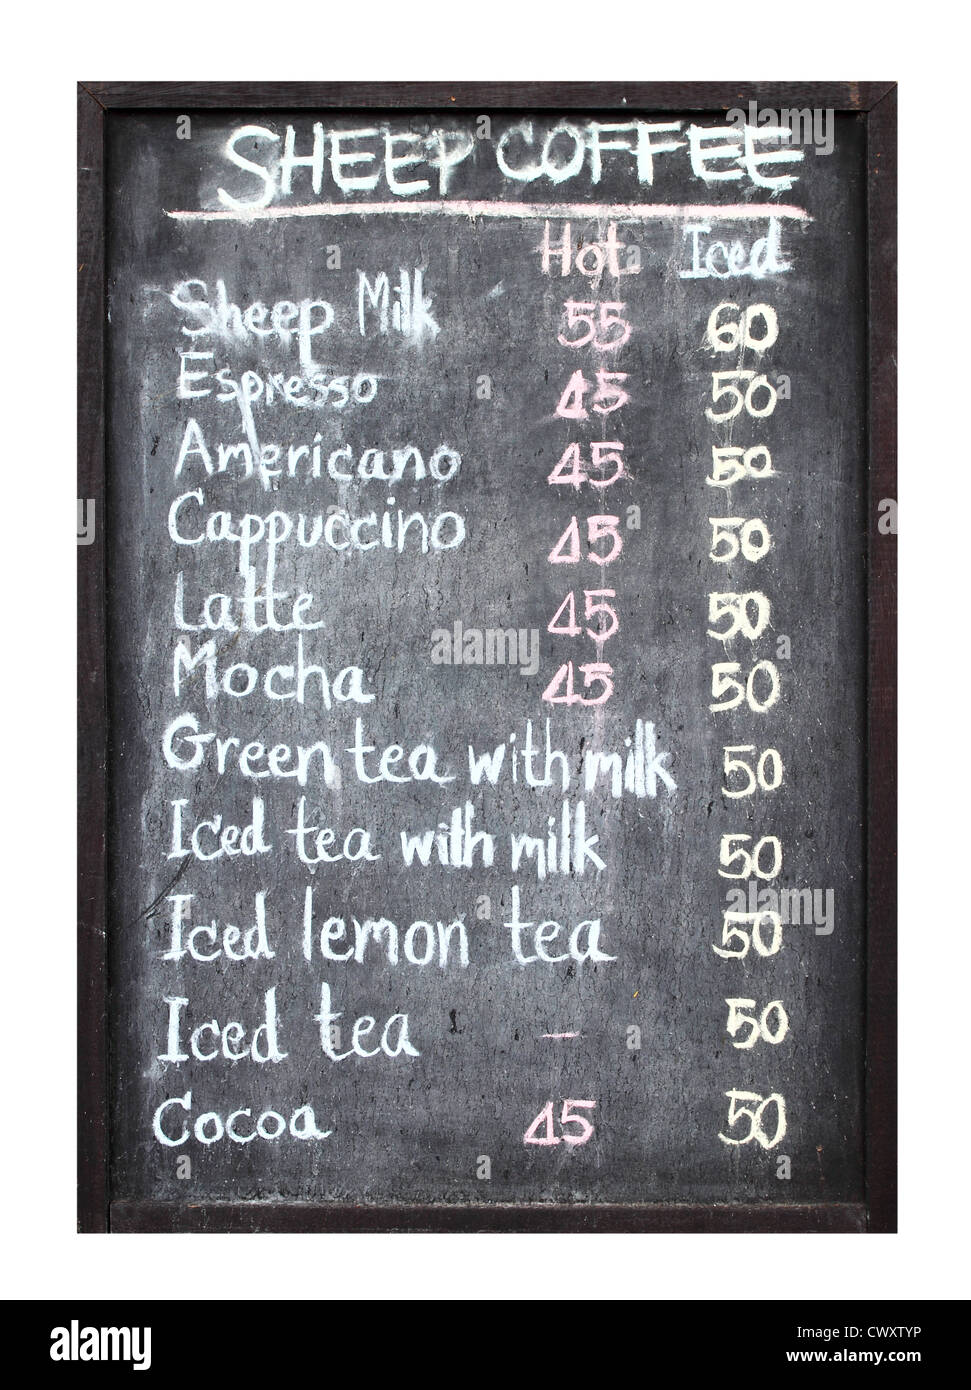 SHEEP COFFEE
Hot Iced
Sheep Milk 55 60
Espresso 45 50
Americano 45 50
Cappuccino 45 50
Latte 45 50
Mocha 45 50
Green tea with milk 50
Iced tea with milk 50
Iced lemon tea 50
Iced tea - 50
Cocoa 45 50
a alamy
alamy
Image ID: CWXTYP
www.alamy.com